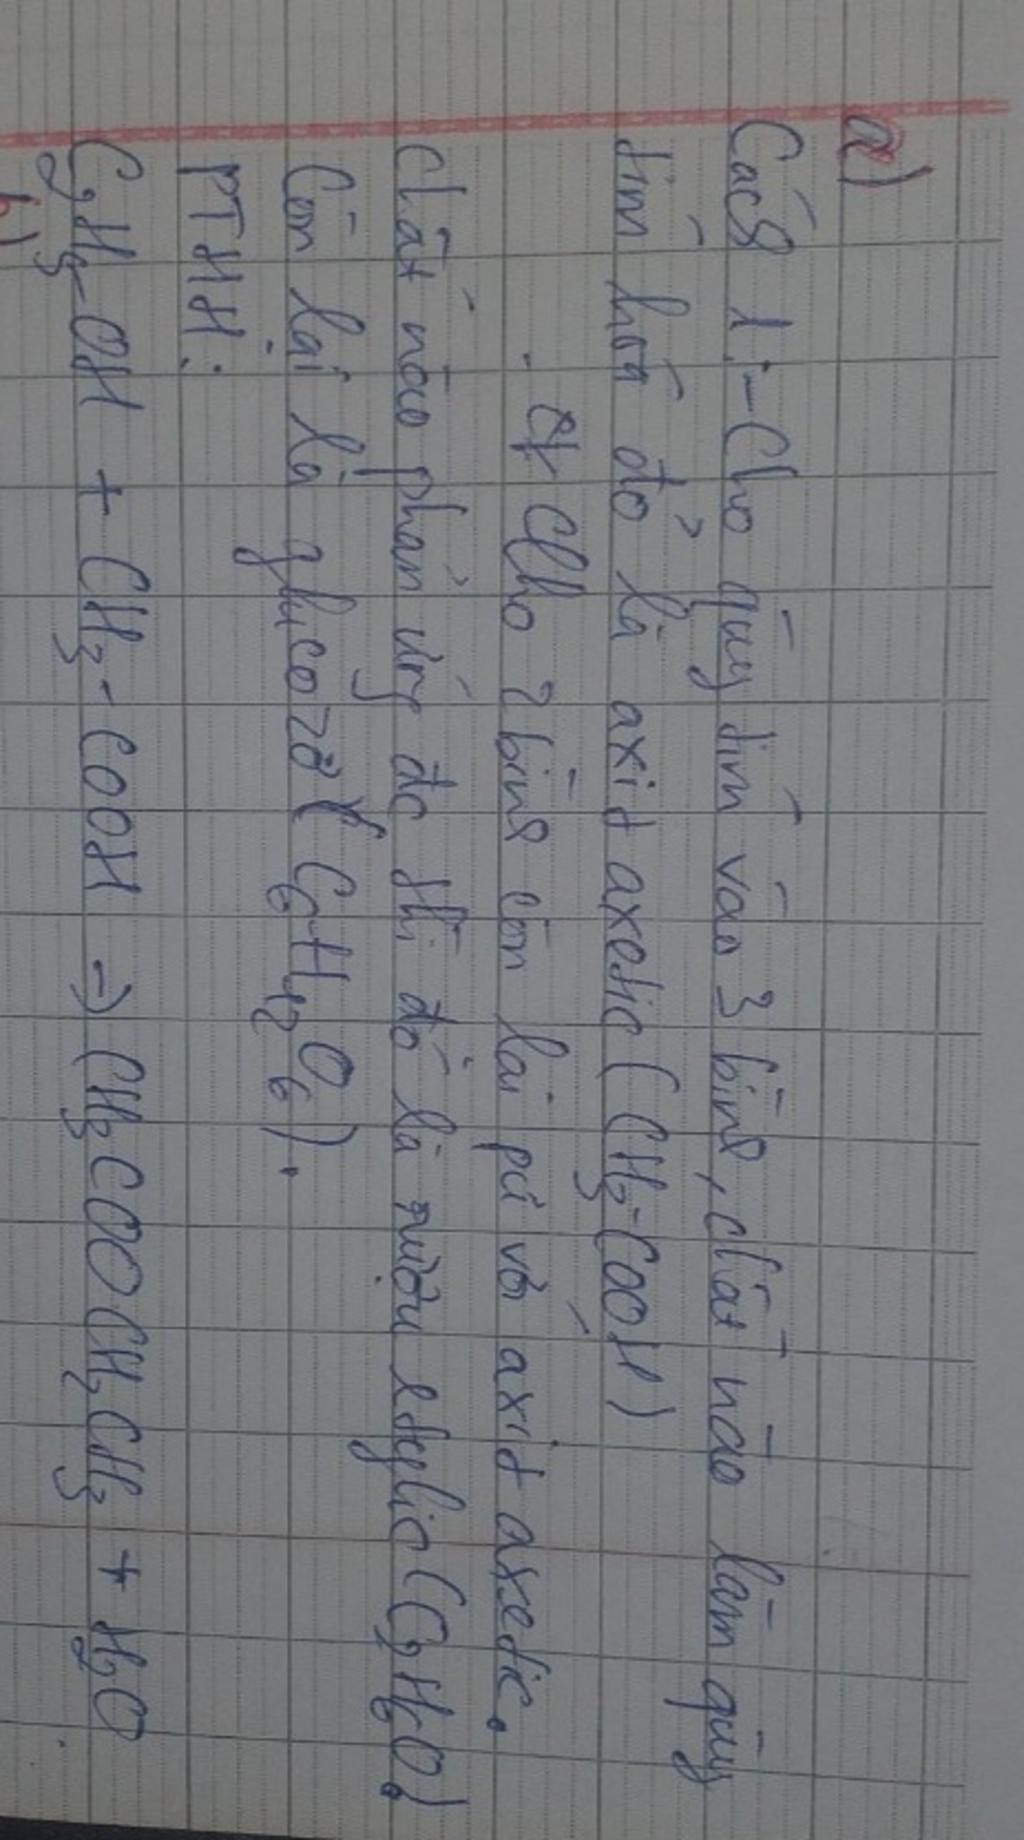 a)
Cách 1: - Cho quỳ tím vào 3 bình, chất nào làm quỳ
tím hoá đỏ là axit axetic (CH3-COOH)
Cho 2 bình còn lại pứ với axit axetic.
chất nào phản ứng đc thì đó là rượu etylic (C2H6O)
Còn lại là glucozơ (C6H12O6).
PTHH:
C2H5-OH + CH3-COOH → CH3COOCH2CH3 + H2O
b)